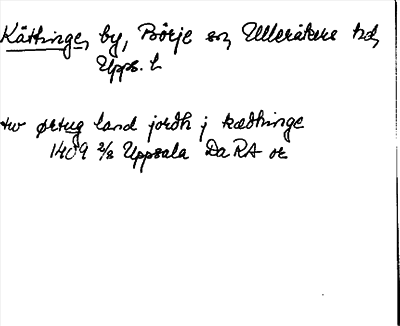 Kättinge, by, Börje sn, Ulleråkers hd,
Upps. l
tw ørtug land jordh j kædhinge
1409 2/2 Uppsala DaRA or